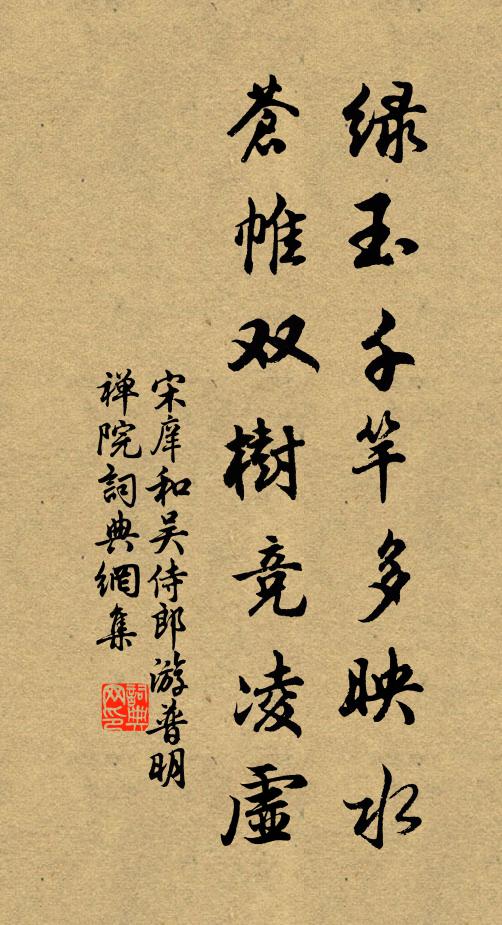 绿玉千竿多映水
苍帷双樹竞凌虚
宋庠和吴侍郎游普明
禅院詞典網集
詞典网印